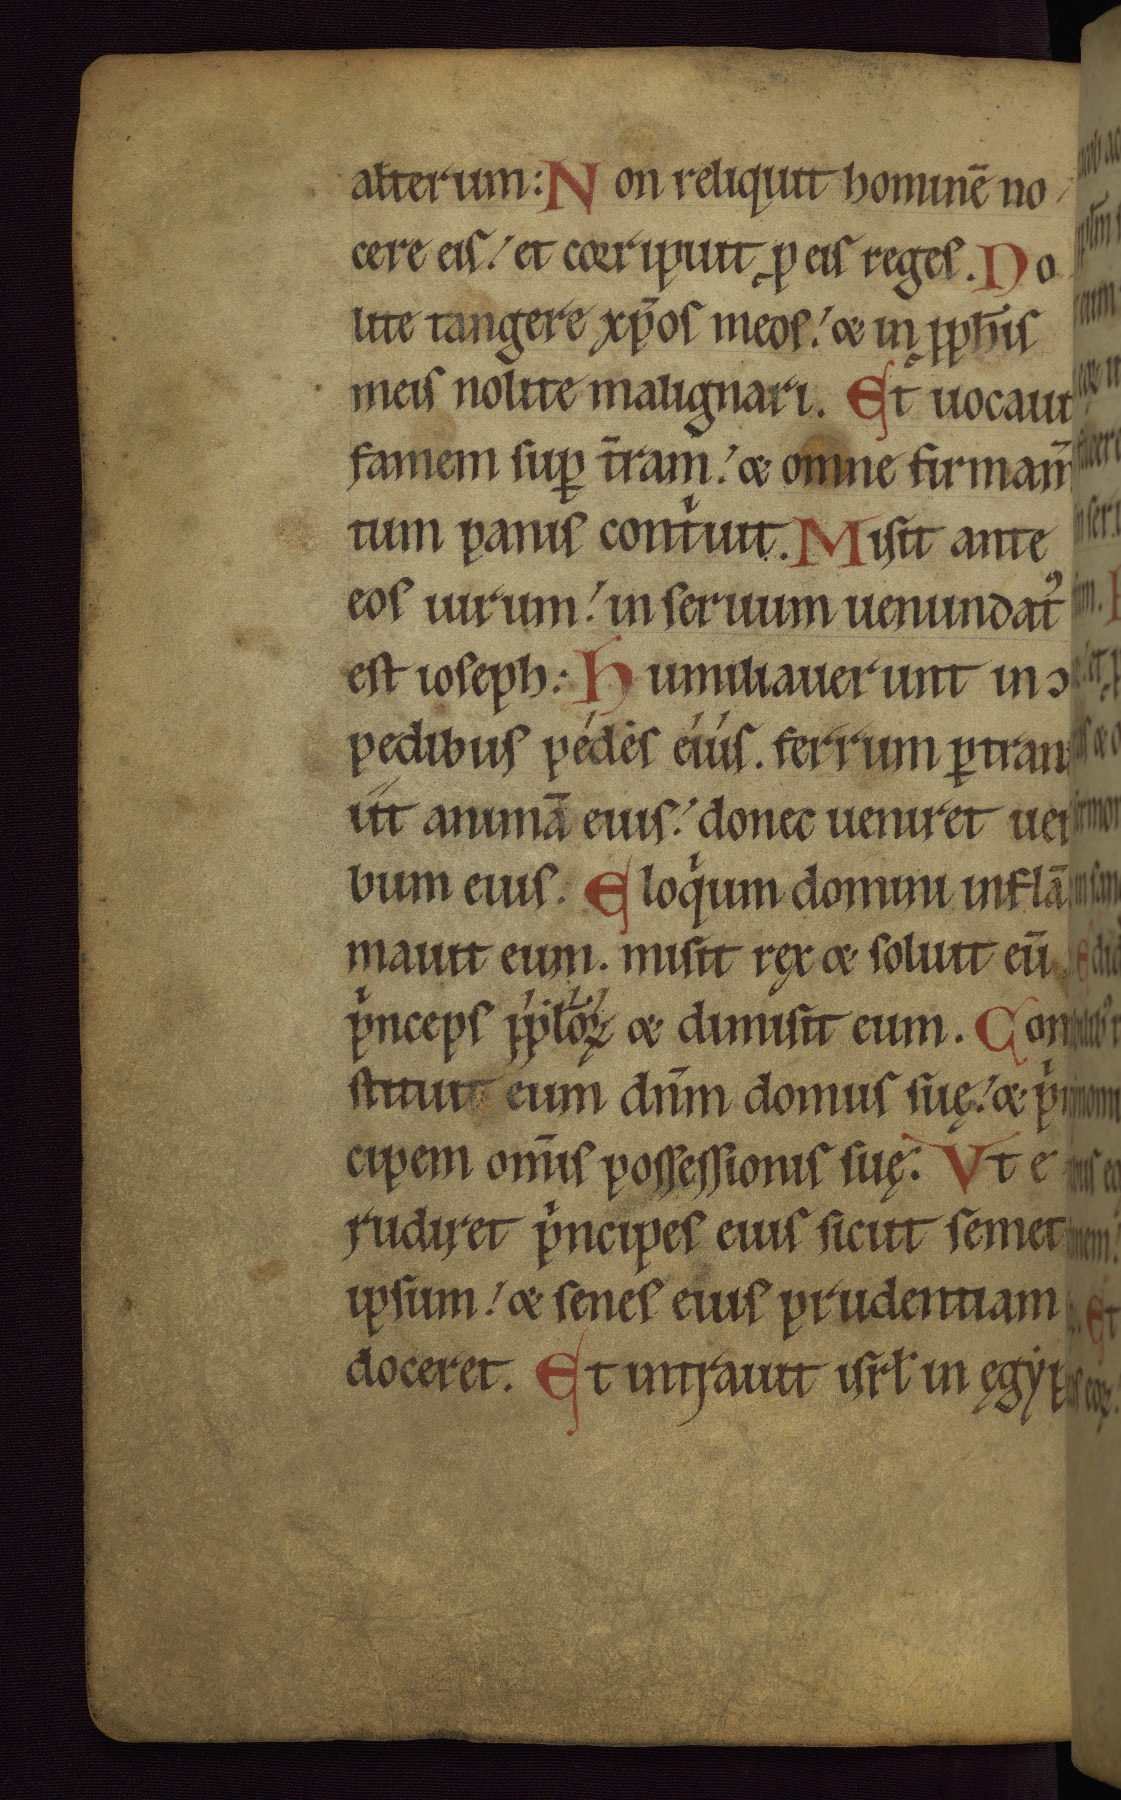 alterum: Non reliquit hominē no
cere eis; et corripuit ꝓ eis reges. No
lite tangere xp̄os meos; & in ꝓph̄is
meis nolite malignari. Et uocauit
famem suꝑ t̄ram; & omne firmam̄
tum panis contͥuit. Misit ante
eos uirum; in seruum uenundatꝰ
est ioseph: Humiliauerunt in ↄ
pedibus pédes eíus. ferrum ꝑtran
iit animā eius; donec ueniret uer
bum eius. Eloqͥum domini inflā
mauit eum. misit rex & soluit eū
pͥnceps ppl̄oꝝ & dimisit eum. Con
stituit eum dn̄m domus suę; & pͥn
cipem om̄is possessionis suę. Vt e
rudiret pͥncipes eius sicut semet
ipsum; & senes eius prudentiam
doceret. Et intrauit isrł in ęgyp